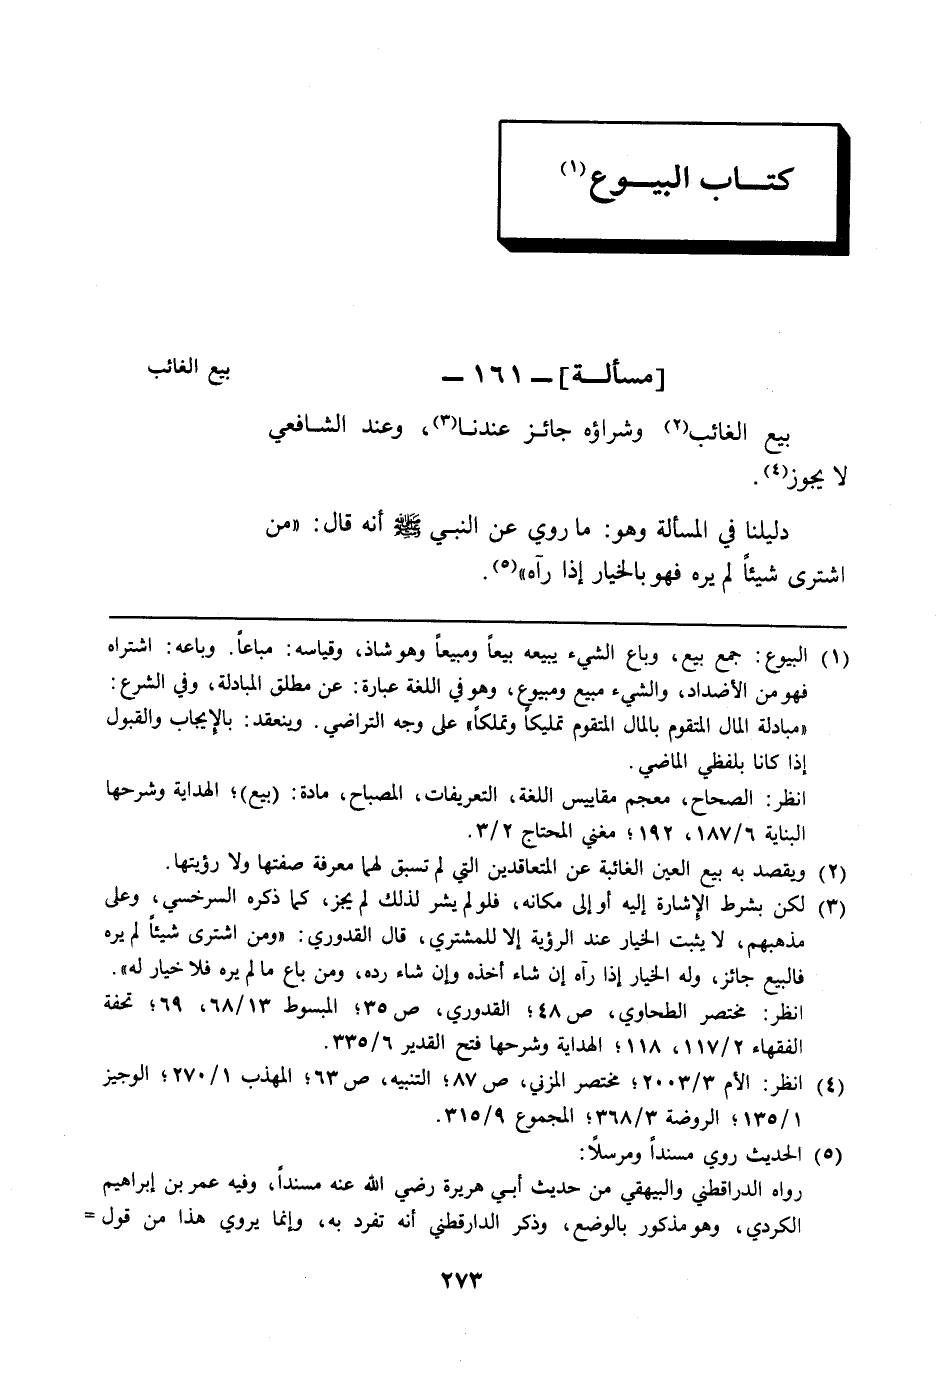 كتـــاب البيـــوع(١)
[مسألـــة] ــ ١٦١ ــ
بيع الغائب
بيع الغائب(٢) وشراؤه جائـز عندنـا(٣)، وعند الشـافعي
لا يجوز(٤).
دليلنا في المسألة وهو: ما روي عن النبـي ﷺ أنه قال: «من
اشترى شيئاً لم يره فهو بالخيار إذا رآه»(٥).
(١) البيوع: جمع بيع، وباع الشيء يبيعه بيعاً ومبيعاً وهو شاذ، وقياسه: مباعاً. وباعه: اشتراه
فهو من الأضداد، والشيء مبيع ومبيوع، وهو في اللغة عبارة: عن مطلق المبادلة، وفي الشرع:
«مبادلة المال المتقوم بالمال المتقوم تمليكاً وتملكاً» على وجه التراضي. وينعقد: بالإيجاب والقبول
إذا كانا بلفظي الماضي.
انظر: الصحاح، معجم مقاييس اللغة، التعريفات، المصباح، مادة: (بيع)؛ الهداية وشرحها
البناية ١٨٧/٦، ١٩٢؛ مغني المحتاج ٣/٢.
(٢) ويقصد به بيع العين الغائبة عن المتعاقدين التي لم تسبق لهما معرفة صفتها ولا رؤيتها.
(٣) لكن بشرط الإشارة إليه أو إلى مكانه، فلو لم يشر لذلك لم يجز، كما ذكره السرخسي، وعلى
مذهبهم، لا يثبت الخيار عند الرؤية إلا للمشتري، قال القدوري: «ومن اشترى شيئاً لم يره
فالبيع جائز، وله الخيار إذا رآه إن شاء أخذه وإن شاء رده، ومن باع ما لم يره فلا خيار له».
انظر: مختصر الطحاوي، ص ٤٨؛ القدوري، ص ٣٥؛ المبسوط ٦٨/١٣، ٦٩؛ تحفة
الفقهاء ١١٧/٢، ١١٨؛ الهداية وشرحها فتح القدير ٣٣٥/٦.
(٤) انظر: الأم ٢٠٠٣/٣؛ مختصر المزني، ص ٨٧؛ التنبيه، ص ٦٣؛ المهذب ٢٧٠/١؛ الوجيز
١٣٥/١؛ الروضة ٣٦٨/٣؛ المجموع ٣١٥/٩.
(٥) الحديث روي مسنداً ومرسلاً:
رواه الدراقطني والبيهقي من حديث أبـي هريرة رضي الله عنه مسنداً، وفيه عمر بن إبراهيم
الكردي، وهو مذكور بالوضع، وذكر الدارقطني أنه تفرد به، وإنما يروي هذا من قول =
٢٧٣